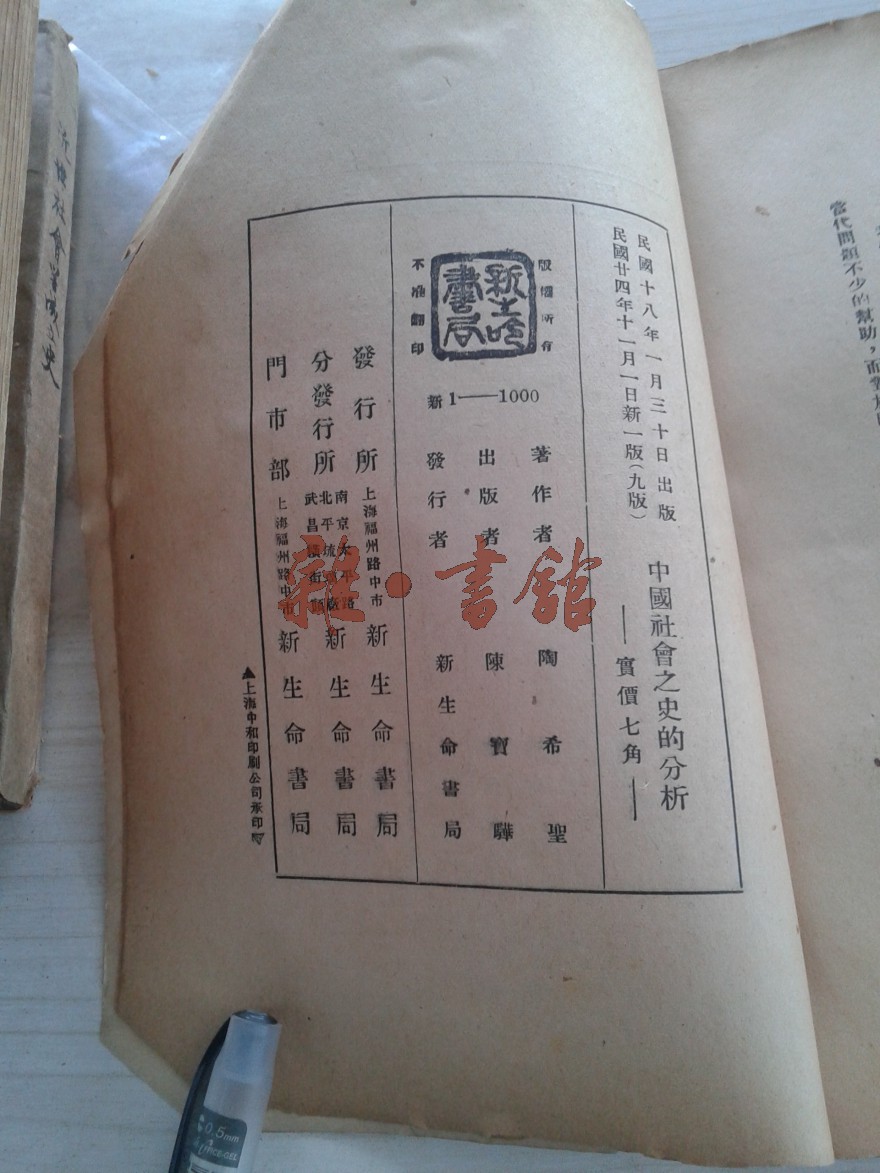 民國十八年一月三十日出版
民國廿四年十一月一日新一版(九版)
中國社會之史的分析
實價七角
版權所有
新生命書局
不准翻印
新1——1000
著作者 陶希聖
出版者 陳寶驊
發行者 新生命書局
發行所 上海福州路中市 新生命書局
分發行所 南京太平路 北平琉璃廠 武昌橫街頭 新生命書局
門市部 上海福州路中市 新生命書局
▲上海中和印刷公司承印▼
雜·書館
當代問題不少的幫助，而對於
社會
史
0.5mm